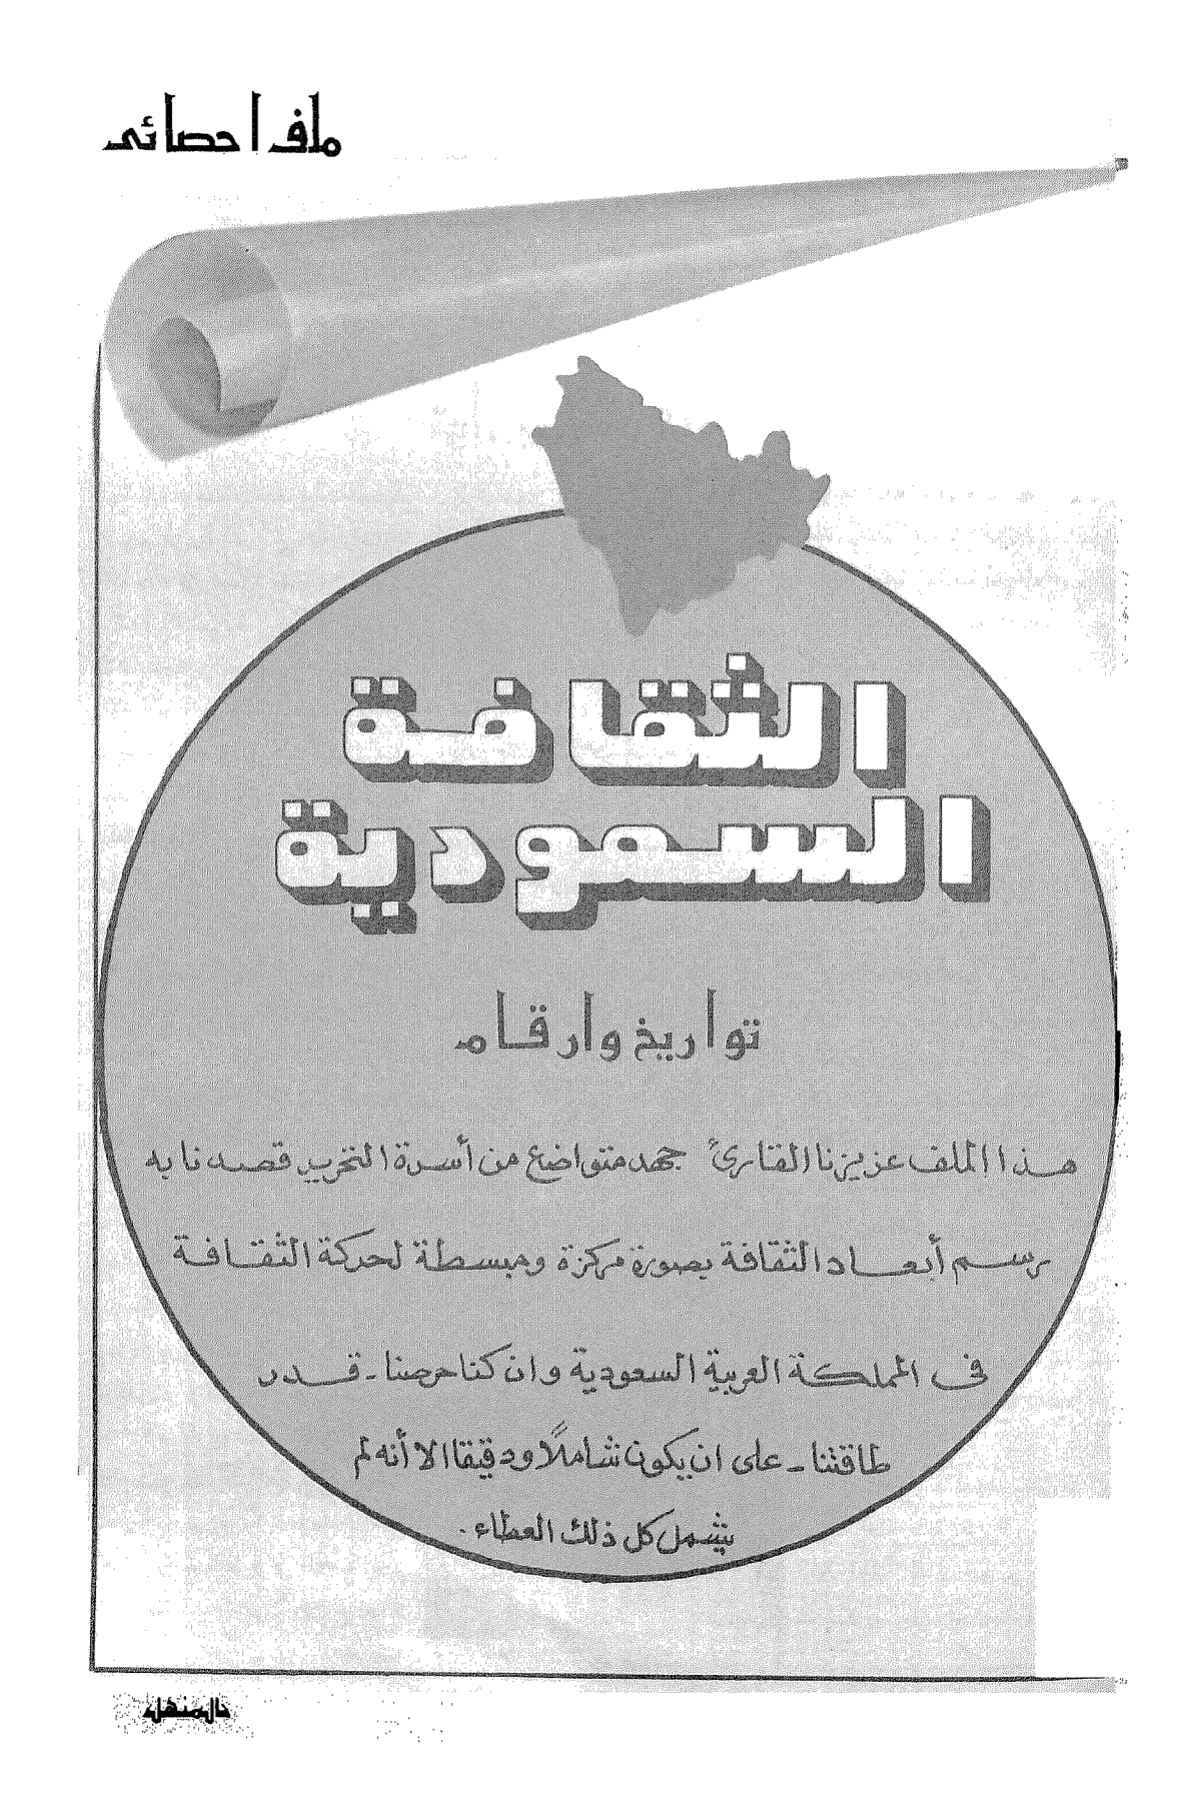 ملف احصائى
الثقافة
السعودية
تواريخ وارقام
هذا الملف عزيزنا القارئ جهد متواضع من أسرة التحرير قصدنا به
رسم أبعاد الثقافة بصورة مركزة ومبسطة لحركة الثقافة
فى المملكة العربية السعودية وان كنا حرصنا - قدر
طاقتنا - على ان يكون شاملًا ودقيقا الا أنه لم
يشمل كل ذلك العطاء .
المنهل